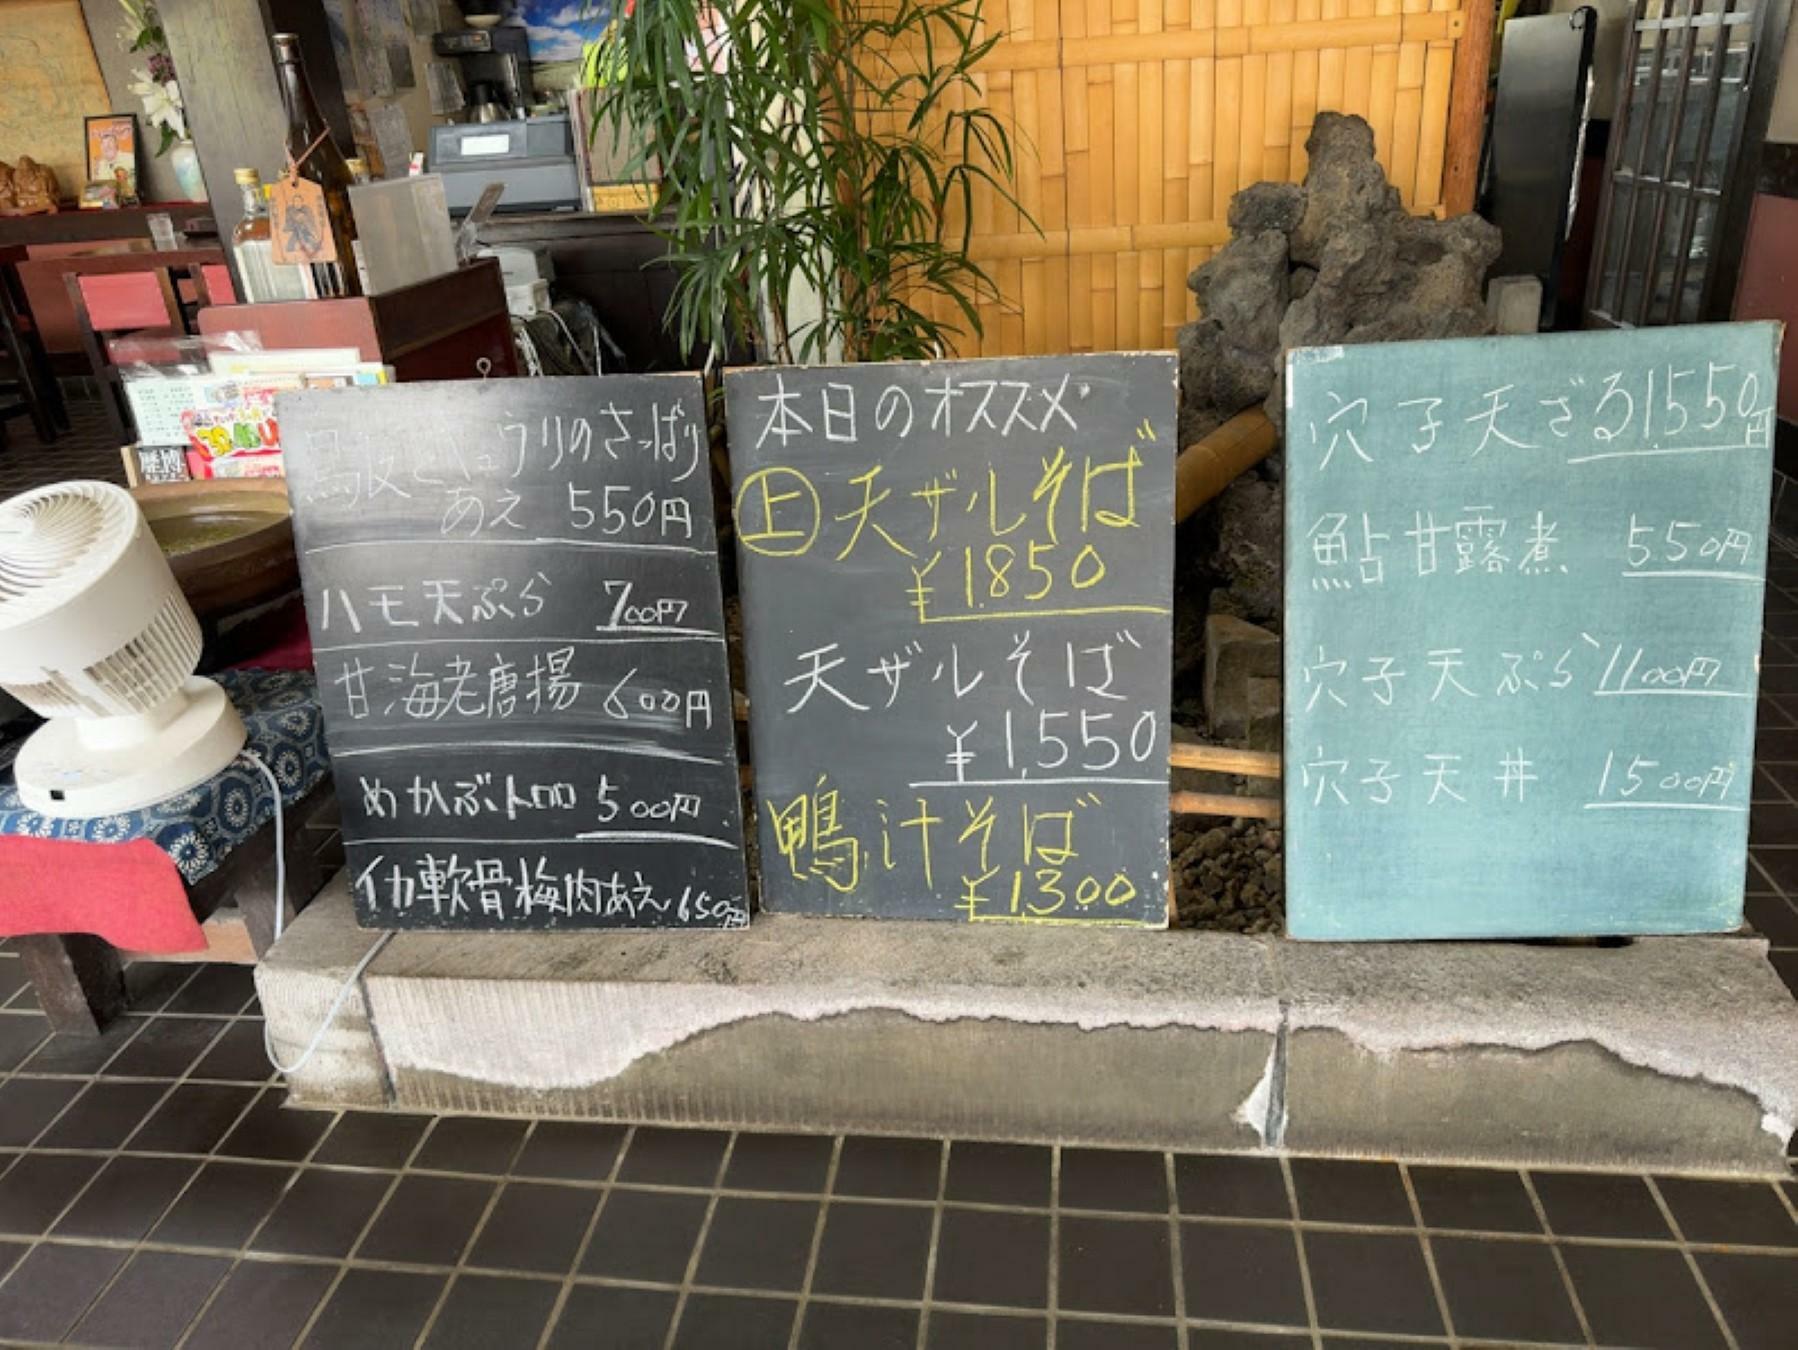 鳥皮とキュウリのさっぱり
あえ 550円
ハモ天ぷら 700円
甘海老唐揚 600円
めかぶトロロ 500円
イカ軟骨梅肉あえ 650円
本日のオススメ
上 天ザルそば
¥1,850
天ザルそば
¥1,550
鴨汁そば
¥1,300
穴子天ざる 1,550円
鮎甘露煮 550円
穴子天ぷら 1100円
穴子天丼 1500円
歴博